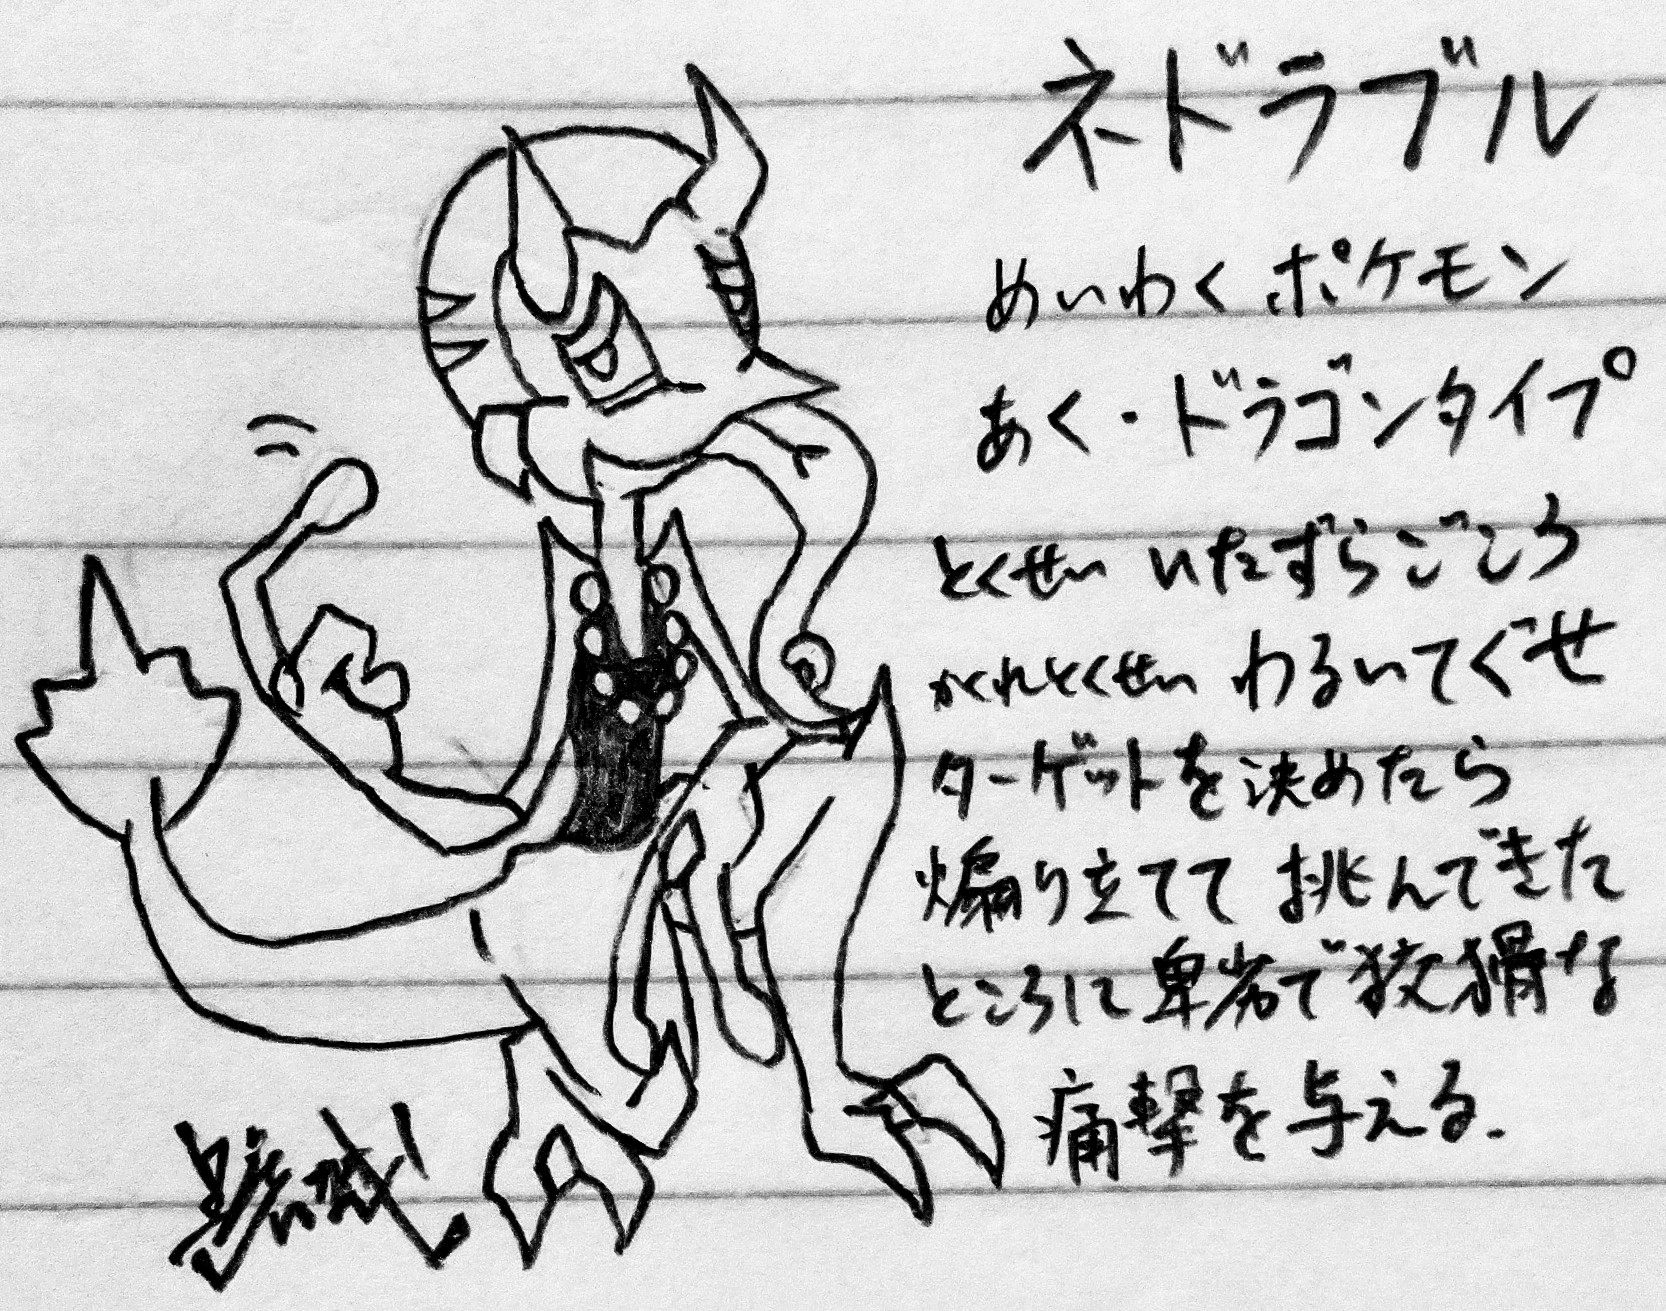 ネドラブル
めいわくポケモン
あく・ドラゴンタイプ
とくせい いたずらごころ
かくれとくせい わるいてぐせ
ターゲットを決めたら
煽り立てて挑んできた
ところに卑劣で狡猾な
痛撃を与える.